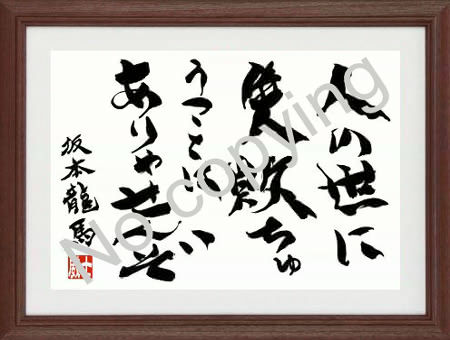 人の世に
失敗ちゅ
うことハ
ありゃせんぞ
坂本龍馬
No copying